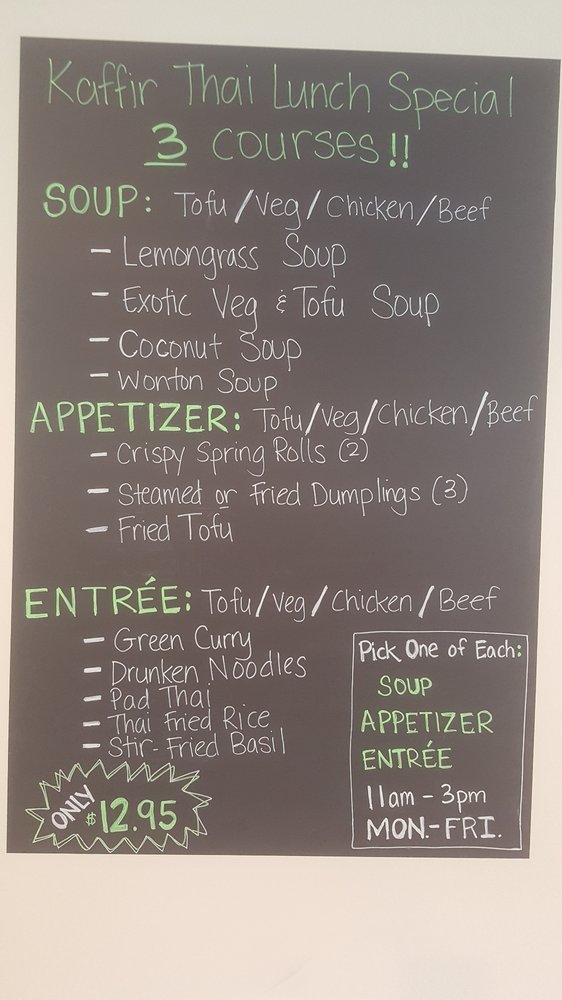 Kaffir Thai Lunch Special
3 COURSES!!
SOUP: Tofu/Veg/Chicken/Beef
- Lemongrass Soup
- Exotic Veg & Tofu Soup
- Coconut Soup
- Wonton Soup
APPETIZER: Tofu/Veg/Chicken/Beef
- Crispy Spring Rolls (2)
- Steamed or Fried Dumplings (3)
- Fried Tofu
ENTRÉE: Tofu/Veg/Chicken/Beef
- Green Curry
- Drunken Noodles
- Pad Thai
- Thai Fried Rice
- Stir-Fried Basil
ONLY $12.95
Pick One of Each:
SOUP
APPETIZER
ENTRÉE
11am - 3pm
MON.-FRI.